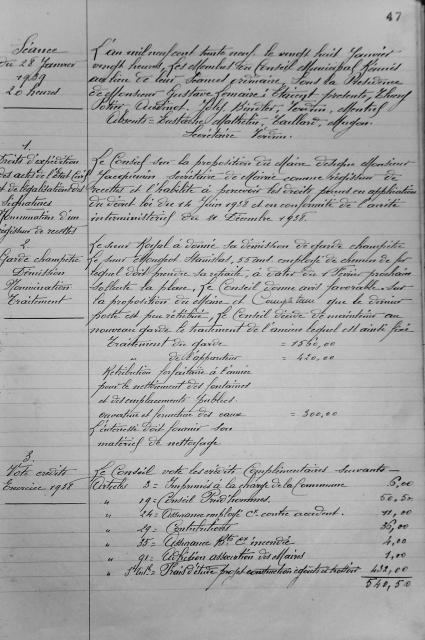 47
Séance
du 28 Janvier
1939
20 heures
L'an mil neuf cent trente neuf le vingt huit Janvier
vingt heures, Les Membres du Conseil Municipal Réunis
au lieu de leur séance ordinaire, sous la Présidence
de Monsieur Gustave Lemaire. Etaient présents,
Absents =
Secrétaire
1.
Droits d'expédition
des actes de l'Etat Civil
et de légalisation des
Signatures
Nomination d'un
régisseur de recettes
Le Conseil sur la proposition du Maire désigne Monsieur
Jacqueminn Secrétaire de Mairie comme régisseur de
recettes et l'habilite à percevoir les droits prévus en application
du décret loi du 14 Juin 1938 et en conformité de l'arrêté
interministériel du 11 Décembre 1938.
2.
Garde champêtre
Démission
Nomination
Traitement
Le sieur a donné sa démission de garde champêtre
Le sieur Mougeot Stanislas, 55 ans employé de chemin de fer
lequel doit prendre sa retraite, à dater du prochain
sollicite la place. Le Conseil donne avis favorable. Sur
la proposition du Maire, et Comptant que le dernier
poste est peu rétribué, le Conseil décide de maintenir au
nouveau garde le traitement de l'ancien lequel est ainsi fixé
Traitement du garde = 1560,00
" de l'appariteur = 420,00
Rétribution forfaitaire à l'année
pour le nettoiement des fontaines
et des emplacements publics
ouverture et fermeture des eaux = 300,00
L'intéressé doit fournir son
matériel de nettoyage
3.
Vote crédits
Exercice 1938
Le Conseil vote les crédits Complémentaires suivants -
Articles 3 = Imprimés à la charge de la Commune 6,00
" 19 = Conseil Prud'hommes. 50,50
" 24 = Assurance employés Cl contre accident. 11,00
" 27 = Contributions 36,00
" 35 = Assurance Bts Cx incendie 4,00
" 91 = Adhésion association des Maires 1,00
" = Frais d'étude projet construction égouts et trottoirs 432,00
540,50